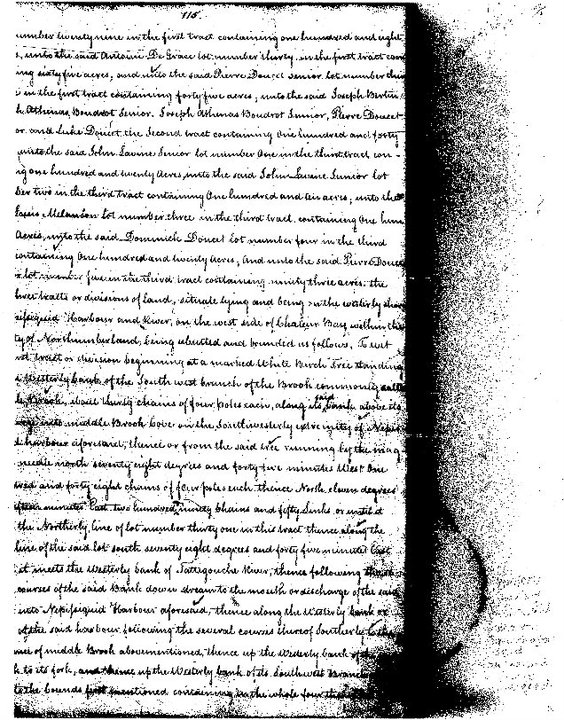 115.
number twenty nine in the first tract containing one hundred and eight
unto the said Antoine De Grace lot number thirty in the first tract con
ing sixty five acres, and unto the said Pierre Doucet senior lot number thir
in the first tract containing forty five acres, unto the said Joseph Bertin
h Athanas Boudrot Senior. Joseph Athanas Boudrot Junior, Pierre Doucet
or and Luke Doucet the Second tract containing One hundred and forty
unto the said John Lavine Senior lot number One in the third tract con-
ing one hundred and twenty Acres, unto the said John Lavine Junior lot
ber two in the third tract containing One hundred and ten acres, unto the
Louis Melanson lot number three in the third tract containing One hun
Acres, unto the said Dominick Doucet lot number four in the third
containing One hundred and twenty acres, and unto the said Pierre Doucet
lot number five in the third tract containing ninety three acres: the
three tracts or divisions of Land, situate lying and being on the westerly shore
nepisiguid Harbour and River, on the west side of Chaleur Bay within the
ty of Northumberland, being abutted and bounded as follows, To wit
tract or division beginning at a marked White Birch Tree standing
Westerly bank of the South west branch of the Brook commonly calle
le Brook, about thirty chains of four poles each, along its said bank above its
into middle Brook Cove on the Southwesterly extremity of Nepisi
harbour aforesaid; thence or from the said tree running by the mag
needle north seventy eight degrees and forty five minutes West One
dred and forty eight chains of four poles each thence North eleven degrees
fifteen minutes East two hundred ninety Chains and fifty links, or until it
the Northerly line of lot number thirty one in this tract thence along the
line of the said lot south seventy eight degrees and forty five minutes East
it meets the Westerly bank of Tattigouche River, thence following the
courses of the said Bank down stream to the mouth or discharge of the said
into Nepisiguid Harbour aforesaid, thence along the Westerly bank or
of the said harbour following the several courses thereof Southerly to the
of middle Brook abovementioned, thence up the Westerly bank of the
k to its fork, and thence up the Westerly bank of its Southwest Branch
to the bounds first mentioned containing in the whole four